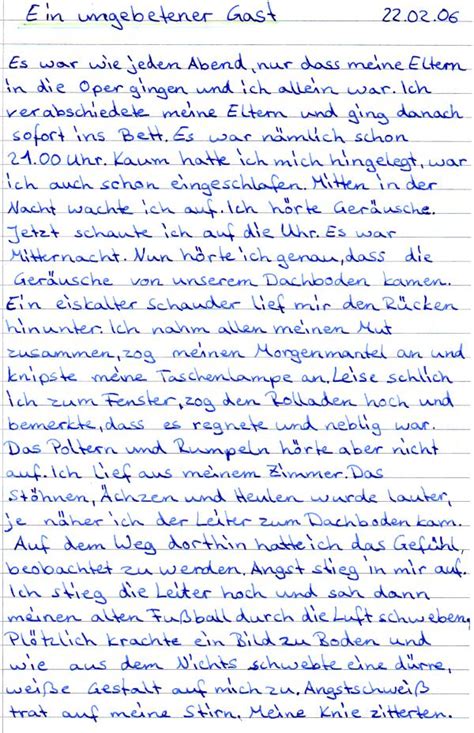 Ein ungebetener Gast 22.02.06
Es war wie jeden Abend, nur dass meine Eltern
in die Oper gingen und ich allein war. Ich
verabschiedete meine Eltern und ging danach
sofort ins Bett. Es war nämlich schon
21.00 Uhr. Kaum hatte ich mich hingelegt, war
ich auch schon eingeschlafen. Mitten in der
Nacht wachte ich auf. Ich hörte Geräusche.
Jetzt schaute ich auf die Uhr. Es war
Mitternacht. Nun hörte ich genau, dass die
Geräusche von unserem Dachboden kamen.
Ein eiskalter Schauder lief mir den Rücken
hinunter. Ich nahm allen meinen Mut
zusammen, zog meinen Morgenmantel an und
knipste meine Taschenlampe an. Leise schlich
ich zum Fenster, zog den Rolladen hoch und
bemerkte, dass es regnete und neblig war.
Das Poltern und Rumpeln hörte aber nicht
auf. Ich lief aus meinem Zimmer. Das
Stöhnen, Ächzen und Heulen wurde lauter,
je näher ich der Leiter zum Dachboden kam.
Auf dem Weg dorthin hatte ich das Gefühl,
beobachtet zu werden. Angst stieg in mir auf.
Ich stieg die Leiter hoch und sah dann
meinen alten Fußball durch die Luft schweben.
Plötzlich krachte ein Bild zu Boden und
wie aus dem Nichts schwebte eine dürre,
weiße Gestalt auf mich zu. Angstschweiß
trat auf meine Stirn. Meine Knie zitterten.